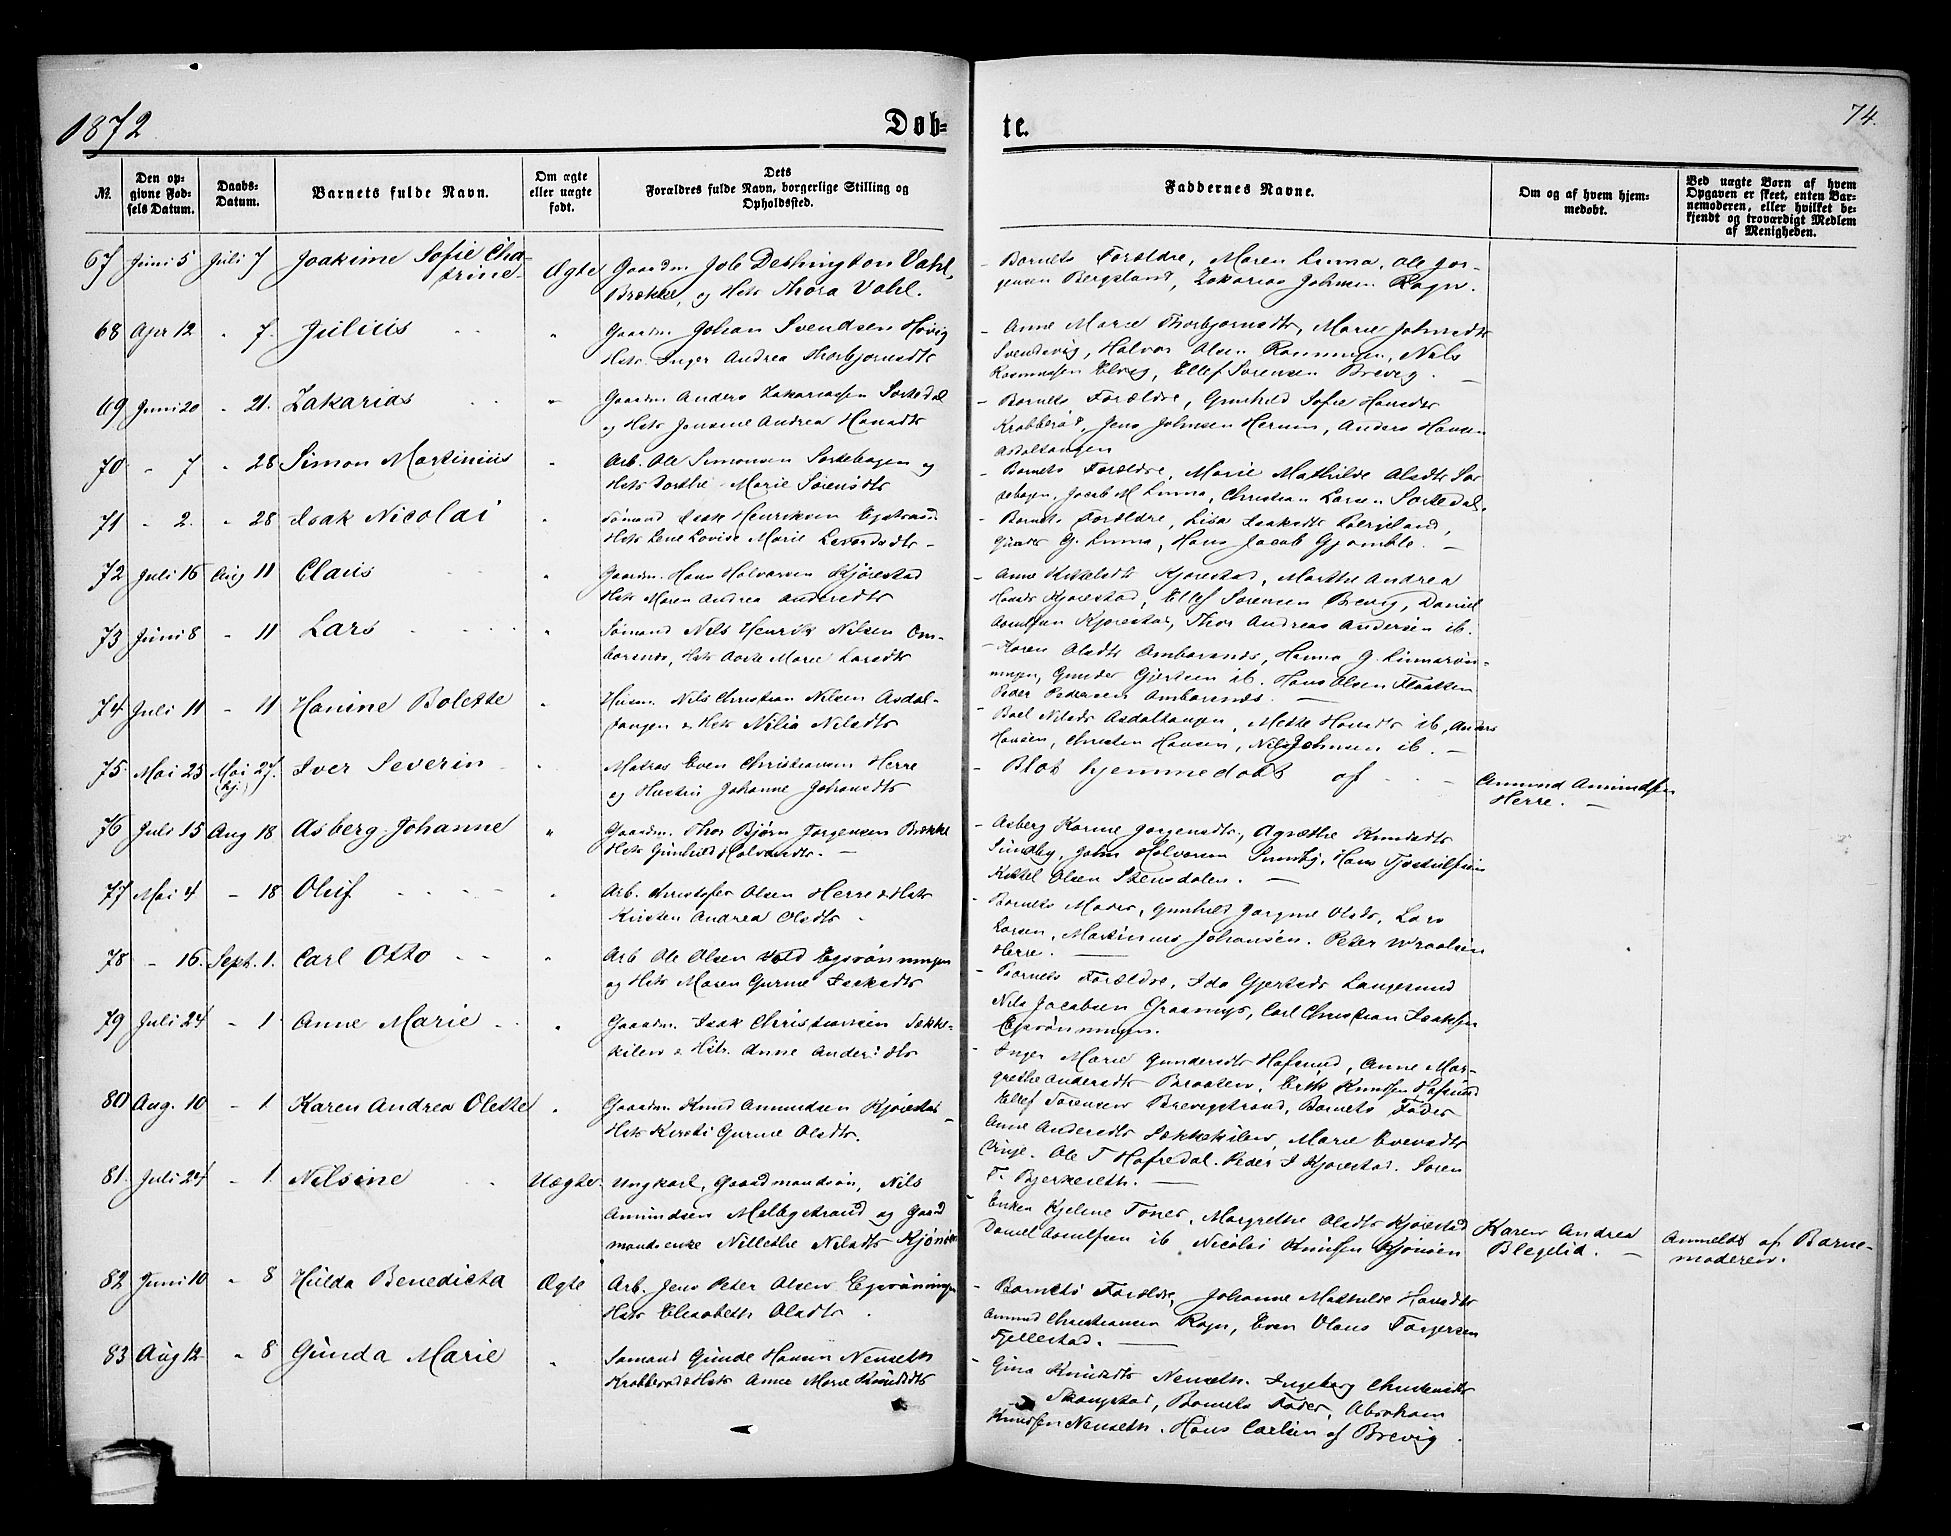 74.
1872
Døb-
te.
№.
Den op-
givne Fød-
sels Datum.
Daabs-
Datum.
Barnets fulde Navn.
Om ægte
eller uægte
født.
Dets
Forældres fulde Navn, borgerlige Stilling og
Opholdssted.
Faddernes Navne.
Om og af hvem hjem-
medøbt.
Ved uægte Børn af hvem
Opgaven er skeet, enten Bar-
nemoderen, eller hvilket be-
kjendt og troværdigt Medlem
af Menigheden.
67 Juni 5 Juli 7 Joakime Sofie Cha-
trine Ægte Gaardm. Job Deshington Vahl,
Brække, og Hstr Thora Vahl.
- Barnets Forældre, Maren Linna, Ole Jør-
gensen Bergsland, Zakarias Johnsen Rogn.
68 Apr 12 " 7. Julius " Gaardm. Johan Svendsen Høvig
Hstr. Inger Andrea Thorbjørnsdtr
- Anne Marie Thorbjørnsdtr, Marie Johnsdtr
Svendsvig, Halvor Olsen Rønningen, Nils
Rasmussen Elvig, Ellef Sørensen Brevig.
69 Juni 20 - 21. Zakarias " Gaardm Anders Zakariassen Sortedal
og Hstr Jensine Andrea Hansdtr
- Barnets Forældre, Gunhild Sofie Hansdtr
Krabberød, Jens Johnsen Herum, Anders Hansen
Asdaltangen
70 " 7 " 28 Simon Martinius " Arb. Ole Simonsen Sortebogen og
Hstr Dorthe Marie Sørensdtr
- Barnets Forældre, Marie Mathilde Olsdtr Sor-
tebogen, Jacob M Linna, Christian Larsen Sortedal.
71 " 2. " 28 Isak Nicolai " Sømand Isak Henriksen
Hstr Lene Lovise Marie
- Barnets Forældre, Lisa Isaksdtr
Gunder G. Linna, Hans Jacob Gjømble. -
72 Juli 16 Aug 11 Claus " Gaardm. Hans Halvorsen Kjørestad
Hstr Maren Andrea Andersdtr
- Anne Kittelsdtr Kjørestad, Marthe Andrea
Hansdtr Kjørestad, Ellef Sørensen Brevig, Daniel
Asulfsen Kjørestad, Thor Andreas Andersen ib.
73 Juni 8 - 11 Lars " Sømand Nils Henrik Nilsen Om-
borsnæs, Hstr Aaste Marie Larsdtr
- Karen Olsdtr Omborsnæs, Hanna G. Linnarøn-
ningen, Gunder Gjertsen ib. Hans Olsen Flaatten
Peder Pedersen Omborsnæs. -
74 Juli 11 - 11 Hanine Bolette " Husm. Nils Christian Nilsen Asdal-
tangen & Hstr Nilia Nilsdtr
- Boel Nilsdtr Asdaltangen, Mette Hansdtr ib, Anders
Hansen, Christen Hansen, Nils Johnsen ib. -
75 Mai 25 Mai 27. (hj.) Iver Severin " Matros Even Christiansen Herre
og Hustru Johanne Johansdtr
- Blot hjemmedøbt af - - -
Amund Amundsen
Herre. -
76 Juli 15 Aug 18 Asberg Johanne " Gaardm. Thor Bjørn Jørgensen Brække
Hstr Gunhild Halvorsdtr. -
- Asberg Karine Jørgensdtr, Agnethe Knudsdtr
Sundby, John Halvorsen Sundby, Hans Tjostulfsen
Kittel Olsen Stensdalen. -
77 Mai 4 - 18 Oluf " Arb. Christofer Olsen Herre & Hstr
Kirsten Andrea Olsdtr
- Barnets Moder, Gunhild Jørgine Olsdtr, Lars
Larsen, Martinius Johansen. Peter Wraalsen
Herre. -
78 - 16. Sept. 1. Carl Otto " Arb Ole Olsen Eysrønningen
og Hstr Maren Gurine Isaksdtr
- Barnets Forældre, Ida Gjertsdtr Langesund
Nils Jacobsen Carl Christian Isaksen
Eysrønningen.
79 Juli 24 - 1 Anne Marie " Gaardm. Isak Christiansen Søkke-
kilen & Hstr. Anne Andersdtr
- Inger Marie Gundersdtr Hafsund, Anne Mar-
grethe Andersdtr Braaten, Erik Knudsen Hafsund
Ellef Sørensen Brevigstrand, Barnets Fader
80 Aug. 10 - 1 Karen Andrea Olette " Gaardm Knud Amundsen Kjørestad
Hstr Kirsti Gurine Olsdtr.
Anne Andersdtr Søkkekilen, Marie Evensdtr
Ole T Hafredal. Peder I Kjørestad. Søren
F. Bjerkeseth. -
81. Juli 24 - 1. Nilsine Uægte. Ungkarl, Gaardmandsøn, Nils
Amundsen Melbystrand og Gaard
mandsenke Nillethe Nilsdtr Kjønøen
- Enken Kjelene Toner, Margrethe Olsdtr Kjørestad
Daniel Asulfsen ib Nicolai Knudsen Kjønøen
Karen Andrea
Blegelid. -
Anmeldt af Barne-
moderen.
82 Juni 10 " 8 Hulda Benedicta Ægte Arb. Jens Peter Olsen Eysrønningen
Hstr Elisabeth Olsdtr.
- Barnets Forældre, Johanne Mathilde Hansdtr
Amund Christiansen Rogn, Even Olaus Torgersen
Fjellestad. -
83 Aug 12 " 8 Gunda Marie " Sømand Gunde Hansen Nenseth
Krabberød & Hstr Anne Marie Knudsdtr
- Gina Knudsdtr Nenseth. Ingeborg
Skougstad, Barnets Fader, Abraham
Knudsen Nenseth. Hans Carlsen af Brevig.